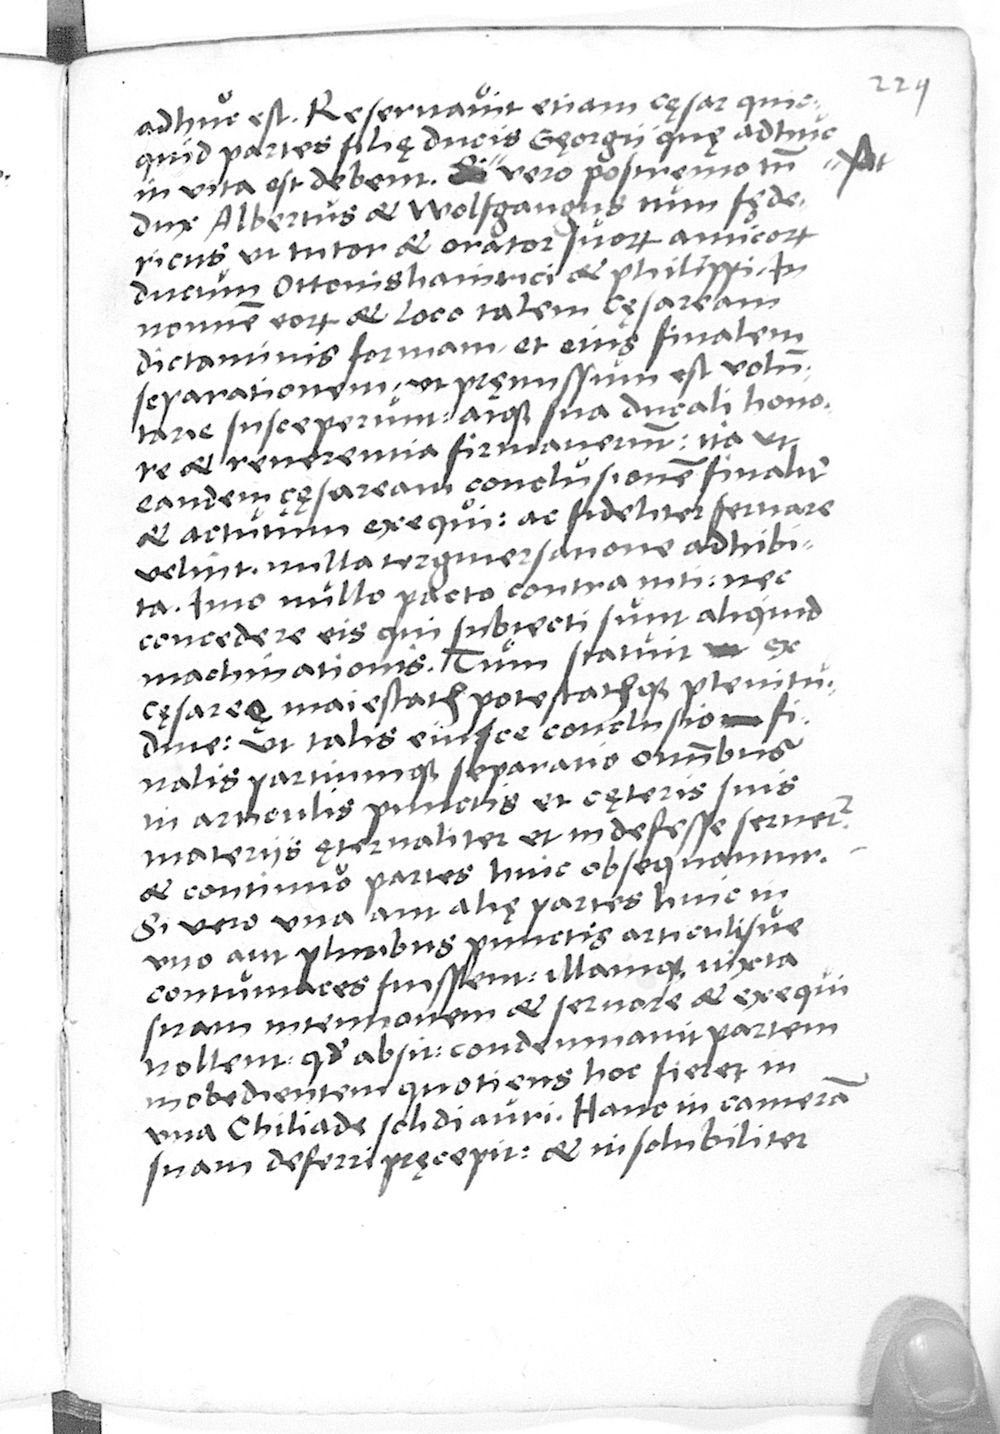 229
adhuc est. Reseruauit etiam cęsar quic-
quid partes filię ducis Gęorgii quę adhuc
in vita est debent. vero postremo tū "At
dux Albertus & Wolfgangus tum fęde-
ricus vt tutor & orator suoꝝ amicoꝝ
ducum Ottonishainrici & philippi. In
nomīe eoꝝ & loco talem cęsaream
dictaminis formam, et eius finalem
separationem, vt pręmissum est volū-
tarie susceperunt: atqꝫ sua ducali hono-
re & reuerentia firmauerūt: ita vt
eandem cęsaream conclusionē finalit̄
& actutum exequi: ac fideliter seruare
velint. nulla tergiuersatione adhibi-
ta. Imo nullo pacto contra niti: nec
concedere eis qui subiecti sunt aliquid
machinationis. Tum statuit ex
cęsareę maiestatis potestatisqꝫ plenitu-
dine: Vt talis eiusce conclusio fi-
nalis partiumqꝫ separatio omībus
in articulis punctis et cęteris suis
materiis ęternaliter et indefesse seruet̄.
& continuo partes huic obsequantur.
Si vero vna aut alię partes huic in
vno aut pluribus punctis articulisue
contumaces fuissent: illamqꝫ iuxta
suam intentionem & seruare & exequi
nollent: qd̄ absit: condemnauit partem
inobedientem quotiens hoc fieret in
vna Chiliade solidi auri. Hanc in camerā
suam deferri pręcepit: & insolubiliter